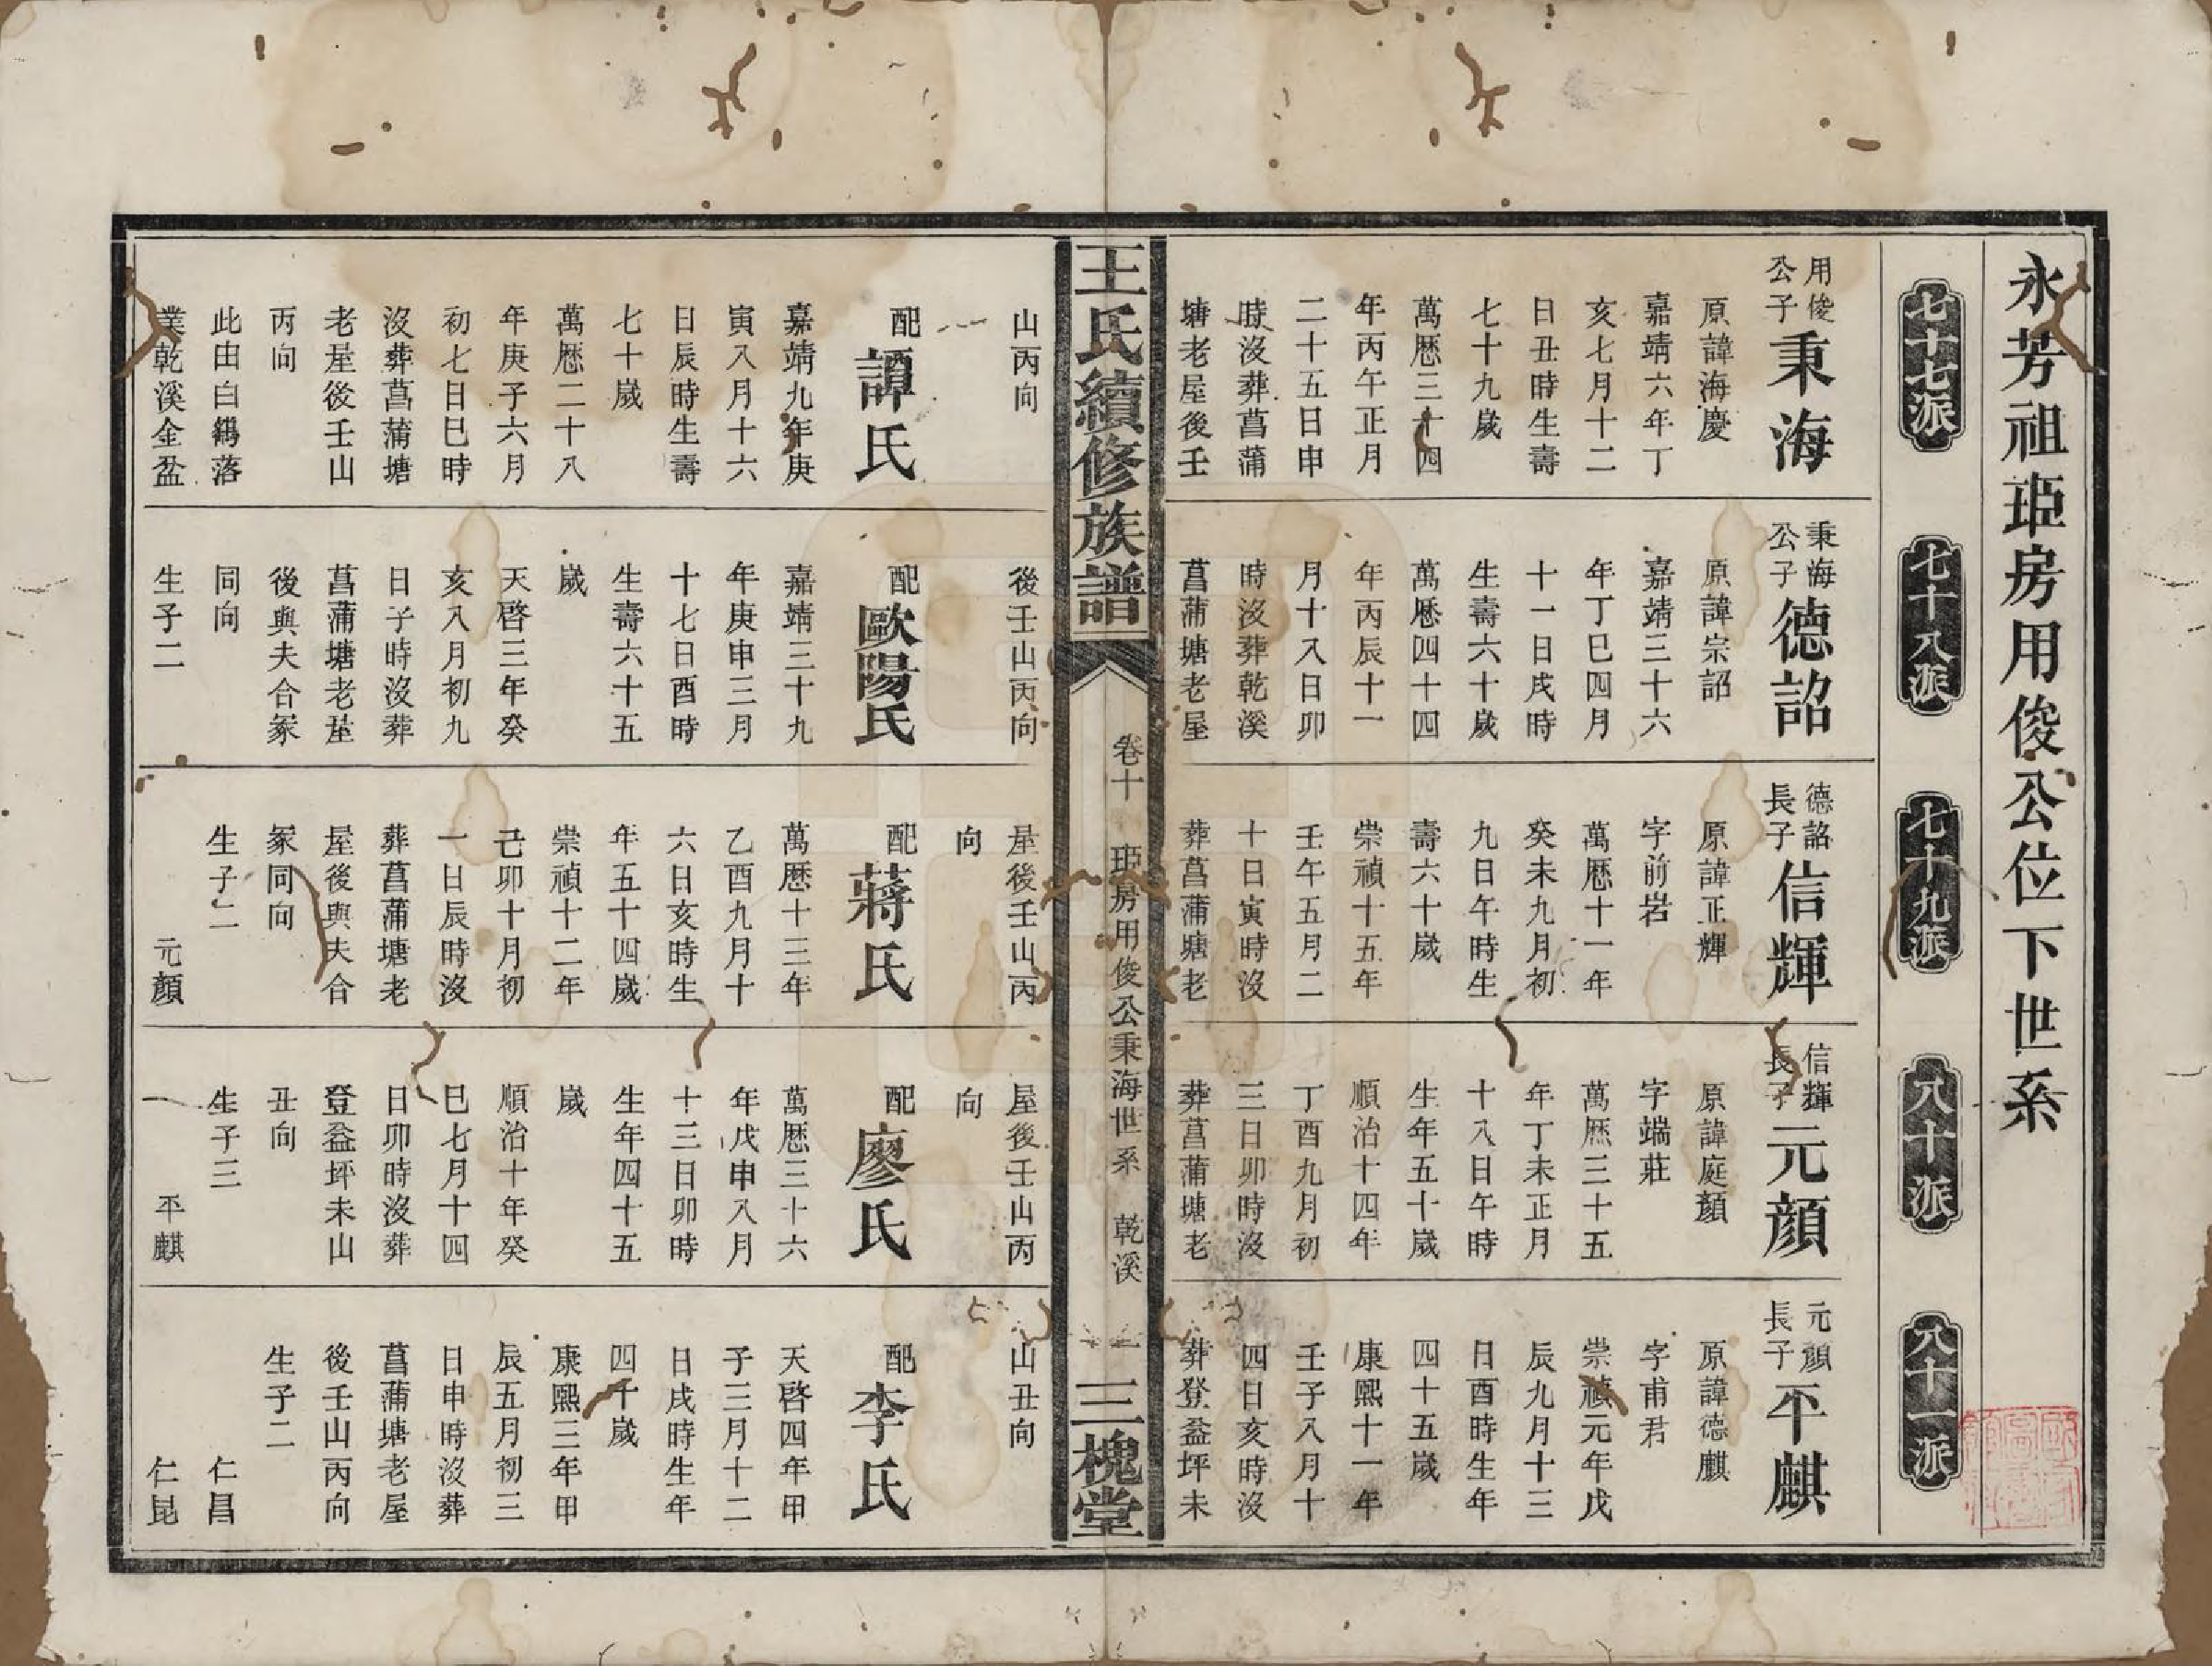 永芳祖㻑房用俊公位下世系
七十七派
七十八派
七十九派
八十派
八十一派
用俊
公子
秉海
原諱海慶
嘉靖六年丁
亥七月十二
日丑時生壽
七十九歲
萬歴三十四
年丙午正月
二十五日申
時沒葬菖蒲
塘老屋後壬
山丙向
配譚氏
嘉靖九年庚
寅入月十六
日辰時生壽
七十歲
萬歴二十八
年庚子六月
初七日巳時
沒葬菖蒲塘
老屋後壬山
丙向
此由白鶴落
業乾溪金盆
秉海
公子
德詔
原諱宗詔
嘉靖三十六
年丁巳四月
十一日戌時
生壽六十歲
萬歴四十四
年丙辰十一
月十入日卯
時沒葬乾溪
菖蒲塘老屋
後壬山丙向
配歐陽氏
嘉靖三十九
年庚申三月
十七日酉時
生壽六十五
歲
天啓三年癸
亥入月初九
日子時沒葬
菖蒲塘老屋
後與夫合冢
同向
生子二
德詔
長子
信輝
原諱正輝
字前岩
萬歴十一年
癸未九月初
九日午時生
壽六十歲
崇禎十五年
壬午五月二
十日寅時沒
葬菖蒲塘老
屋後壬山丙
向
配蔣氏
萬歴十三年
乙酉九月十
六日亥時生
年五十四歲
崇禎十二年
己卯十月初
一日辰時沒
葬菖蒲塘老
屋後與夫合
冢同向
生子二
元顏
信輝
長子
元顏
原諱庭顏
字端莊
萬歴三十五
年丁未正月
十入日午時
生年五十歲
順治十四年
丁酉九月初
三日卯時沒
葬菖蒲塘老
屋後壬山丙
向
配廖氏
萬歴三十六
年戊申入月
十三日卯時
生年四十五
歲
順治十年癸
巳七月十四
日卯時沒葬
登益坪未山
丑向
生子三
平麒
元顏
長子
平麒
原諱德麒
字甫君
崇禎元年戊
辰九月十三
日酉時生年
四十五歲
康熙十一年
壬子入月十
四日亥時沒
葬登益坪未
山丑向
配李氏
天啓四年甲
子三月十二
日戌時生年
四十歲
康熙三年甲
辰五月初三
日申時沒葬
菖蒲塘老屋
後壬山丙向
生子二
仁昌
仁昆
王氏續修族譜
卷十 㻑房用俊公秉海世系 乾溪 一
三槐堂